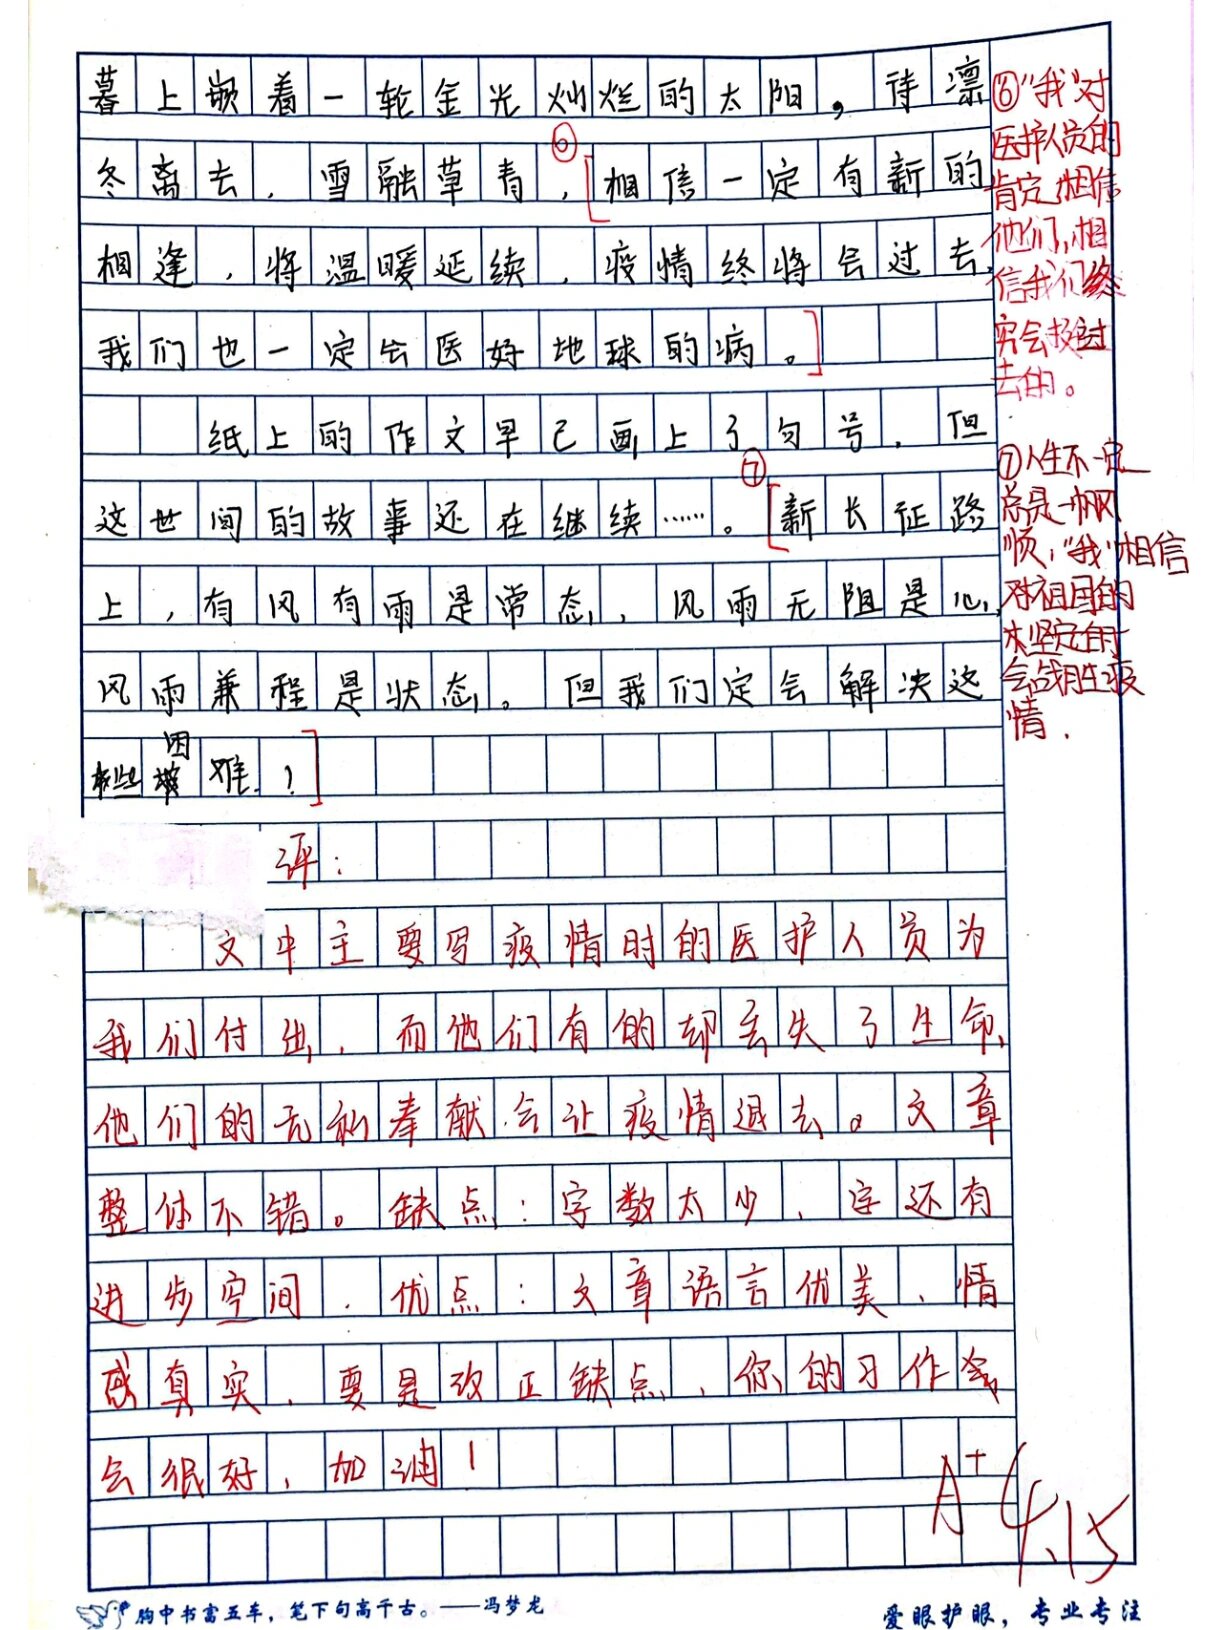 暮上嵌着一轮金光灿烂的太阳，待凛
⑥
冬离去，雪融草青，[相信一定有新的
相逢，将温暖延续，疫情终将会过去，
我们也一定会医好地球的病。]
纸上的作文早已画上了句号，但
⑦
这世间的故事还在继续……。[新长征路
上，有风有雨是常态，风雨无阻是心，
风雨兼程是状态。但我们定会解决这
些困难！]
⑥“我”对
医护人员的
肯定，相信
他们，相
信我们终
究会挺过
去的。
⑦人生不一定
总是一帆风
顺，“我”相信
对祖国的
坚定的
会战胜疫
情.
评：
文中主要写疫情时的医护人员为
我们付出，而他们有的却丢失了生命，
他们的无私奉献会让疫情退去。文章
整体不错。缺点：字数太少，字还有
进步空间，优点：文章语言优美、情
感真实，要是改正缺点，你的习作会
会很好，加油！
A+ 4.15
胸中书富五车，笔下句高千古。——冯梦龙
爱眼护眼，专业专注